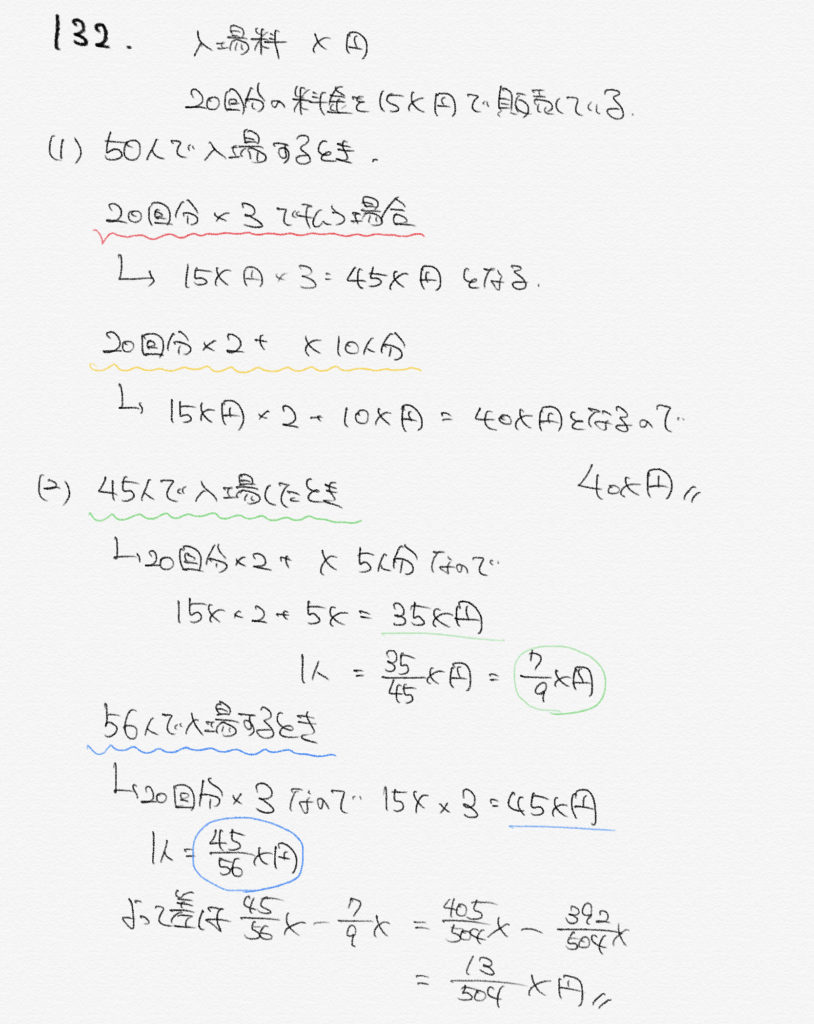 132. 入場料 x円
20回分の料金を15x円で販売している.
(1) 50人で入場するとき.
20回分×3で払う場合
↳ 15x円×3=45x円となる.
20回分×2+ x 10人分
↳ 15x円×2+10x円=40x円となるので
40x円〃
(2) 45人で入場したとき
↳20回分×2+ x 5人分なので
15x×2+5x=35x円
1人=35/45x円=7/9x円
56人で入場するとき
↳20回分×3なので 15x×3=45x円
1人=45/56x円
よって差は 45/56x-7/9x=405/504x-392/504x
=13/504x円〃